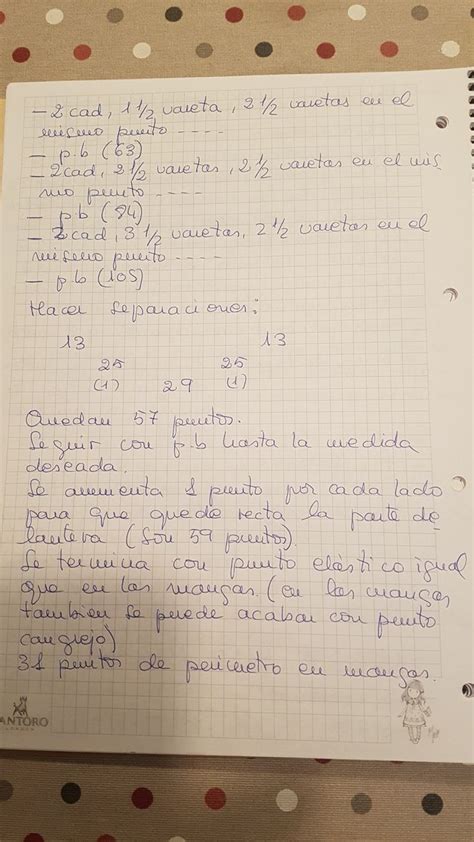 - 2 cad, 1 1/2 vareta, 2 1/2 varetas en el
mismo punto ----
- p.b (63)
- 2 cad, 2 1/2 varetas, 2 1/2 varetas en el mis
mo punto ----
- pb (84)
- 2 cad, 3 1/2 varetas, 2 1/2 varetas en el
mismo punto ----
- p.b (105)
Hacer separaciones:
13 13
25 25
(1) 29 (1)
Quedan 57 puntos.
Seguir con p.b hasta la medida
deseada.
Se aumenta 1 punto por cada lado
para que quede recta la parte de
lantera (Son 59 puntos)
Se termina con punto elástico igual
que en las mangas. (en las mangas
tambien se puede acabar con punto
cangrejo)
31 puntos de perimetro en mangas.
ANTORO
LONDON